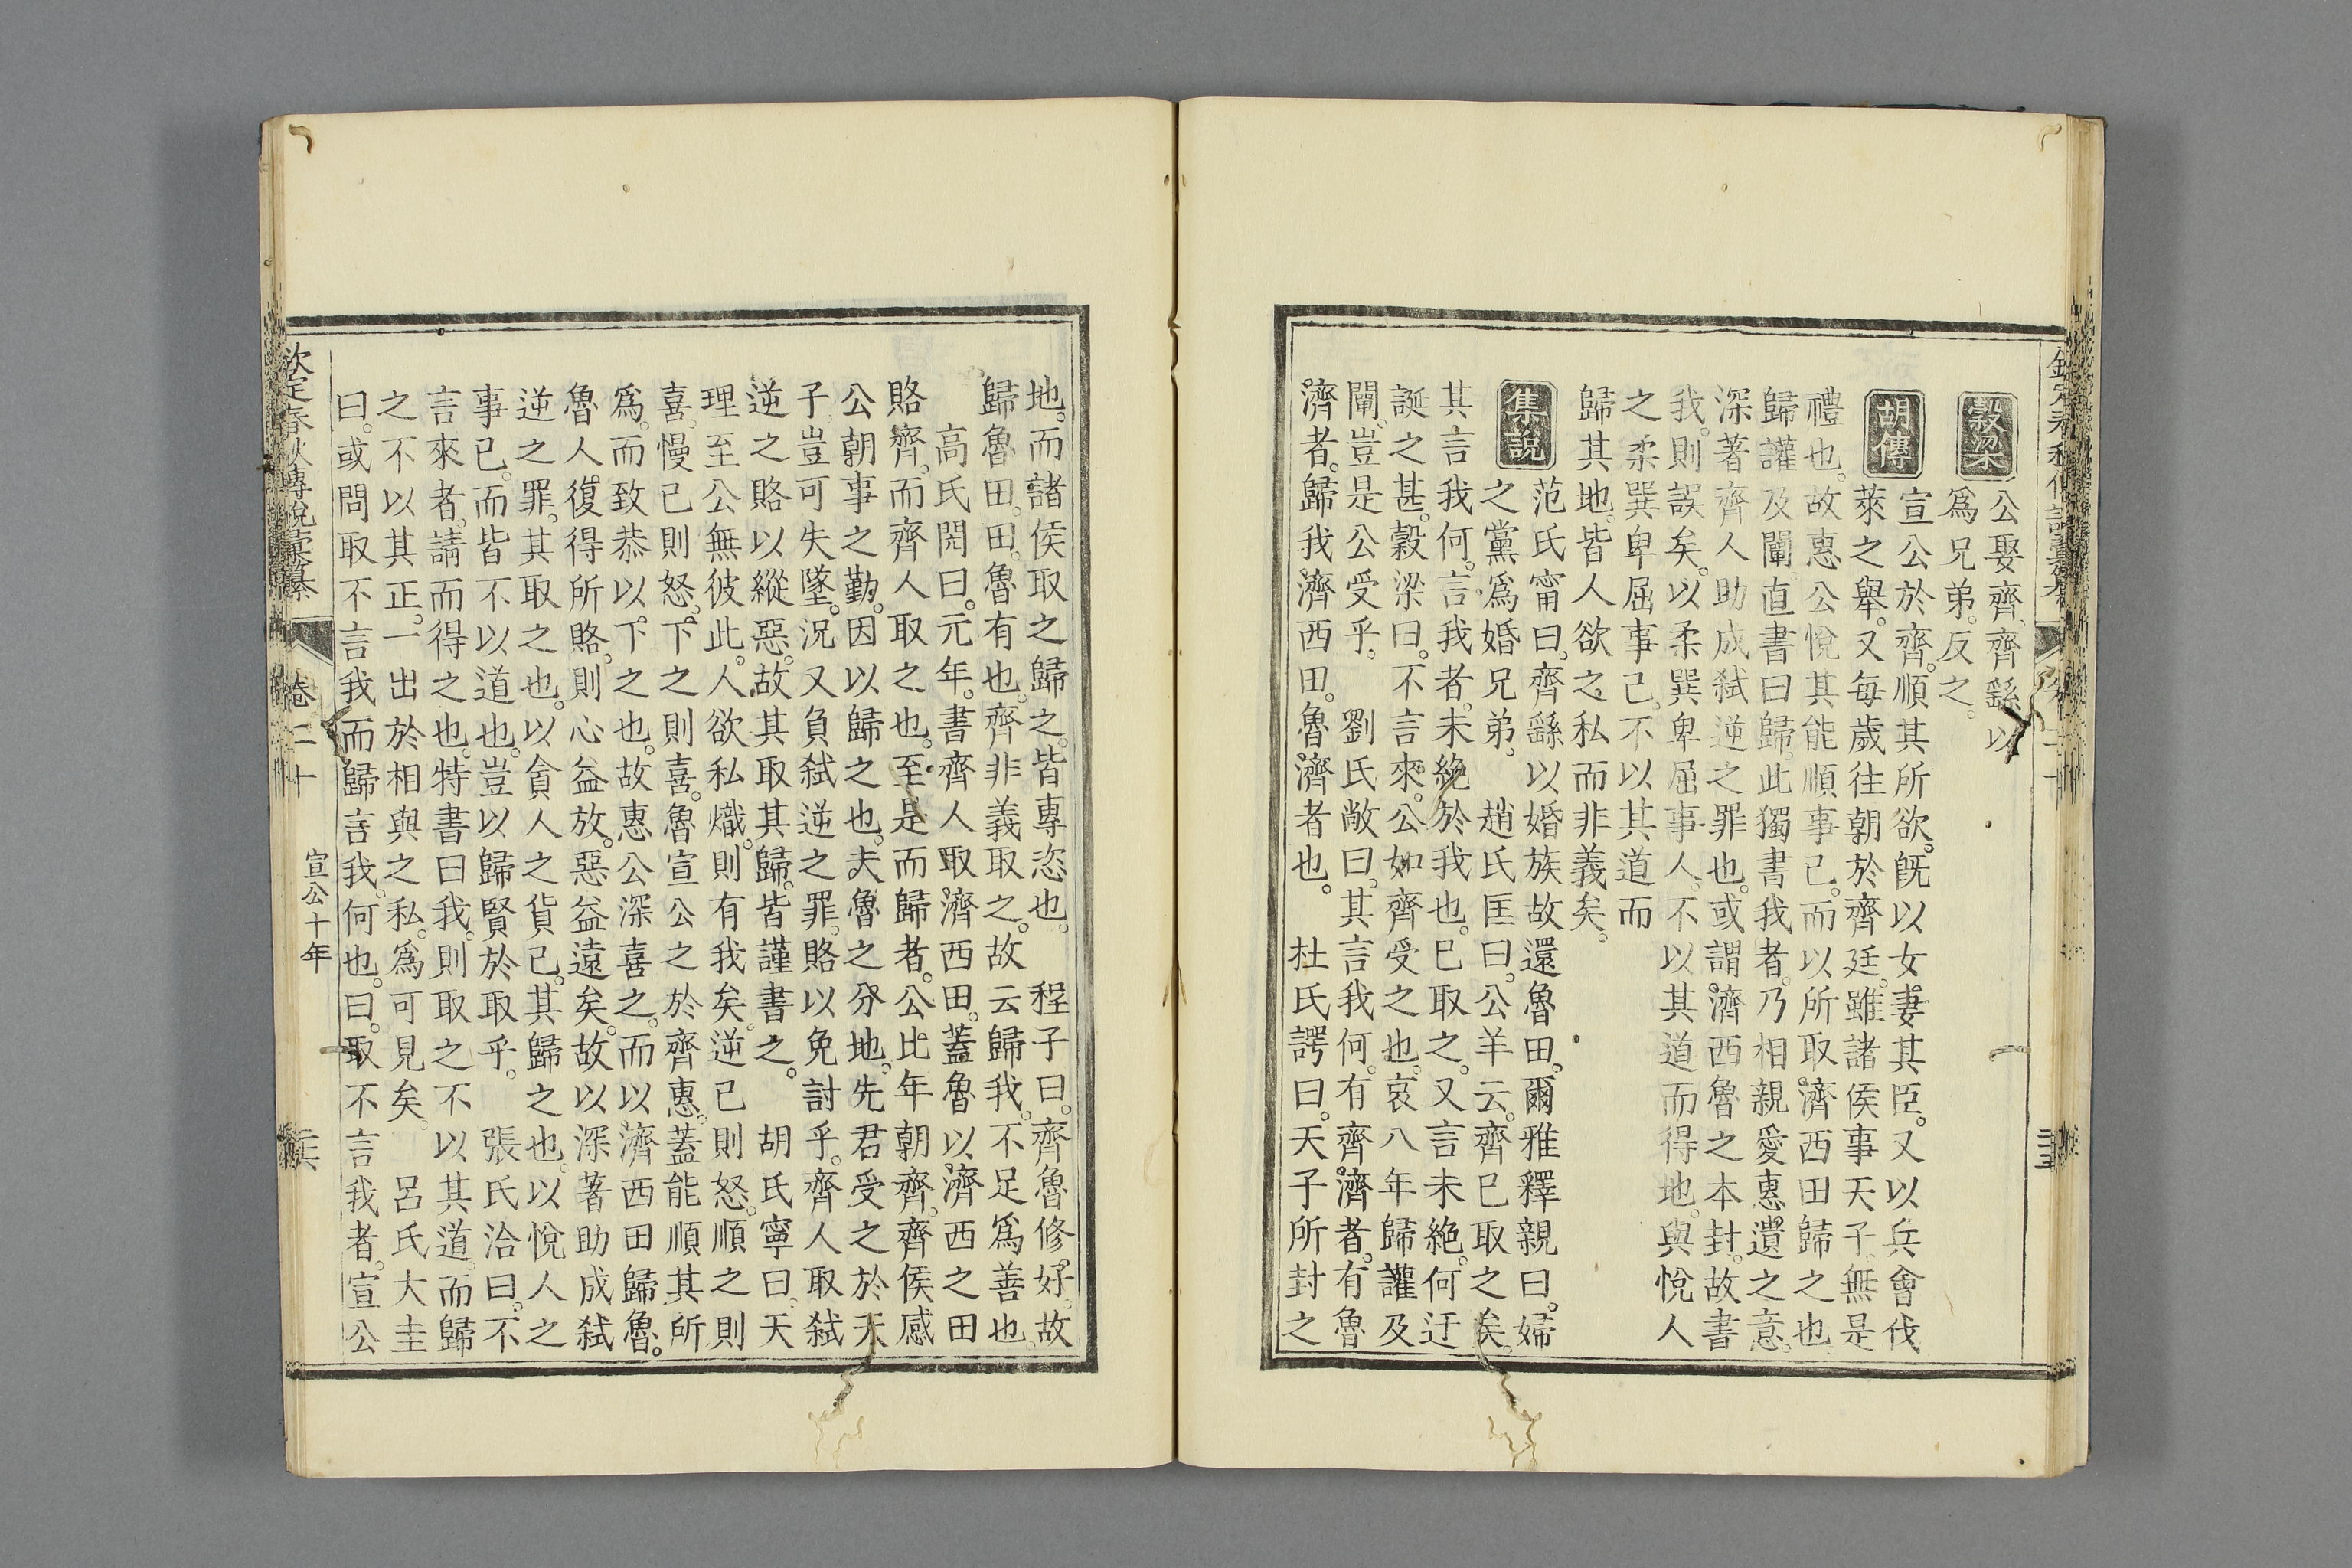 穀梁 公娶齊齊繇以
爲兄弟反之。
胡傳 宣公於齊順其所欲既以女妻其臣又以兵會伐
萊之舉又每歲往朝於齊廷雖諸侯事天子無是
禮也故惠公悅其能順事己而以所取濟西田歸之也
歸讙及闡直書曰歸此獨書我者乃相親愛惠遺之意
深著齊人助成弒逆之罪也或謂濟西魯之本封故書
我則誤矣以柔巽卑屈事人不以其道而得地與悅人
之柔巽卑屈事己不以其道而
歸其地皆人欲之私而非義矣。
集說 范氏甯曰齊繇以婚族故還魯田爾雅釋親曰婦
之黨爲婚兄弟。 趙氏匡曰公羊云齊已取之矣
其言我何言我者未絶於我也已取之又言未絶何迂
誕之甚穀梁曰不言來公如齊受之也哀八年歸讙及
闡豈是公受乎。 劉氏敞曰其言我何有齊濟者有魯
濟者歸我濟西田魯濟者也。 杜氏諤曰天子所封之
地而諸侯取之歸之皆專恣也。 程子曰齊魯修好故
歸魯田田魯有也齊非義取之故云歸我不足爲善也
高氏閌曰元年書齊人取濟西田蓋魯以濟西之田
賂齊而齊人取之也至是而歸者公比年朝齊齊侯感
公朝事之勤因以歸之也夫魯之分地先君受之於天
子豈可失墜況又負弒逆之罪賂以免討乎齊人取弒
逆之賂以縱惡故其取其歸皆謹書之。 胡氏寧曰天
理至公無彼此人欲私熾則有我矣逆己則怒順之則
喜慢己則怒下之則喜魯宣公之於齊惠蓋能順其所
爲而致恭以下之也故惠公深喜之而以濟西田歸魯
魯人復得所賂則心益放惡益遠矣故以深著助成弒
逆之罪其取之也以貪人之貨己其歸之也以悅人之
事己而皆不以道也豈以歸賢於取乎。 張氏洽曰不
言來者請而得之也特書曰我則取之不以其道而歸
之不以其正一出於相與之私爲可見矣 呂氏大圭
曰或問取不言我而歸言我何也曰取不言我者宣公
欽定春秋傳說彙纂 卷二十 宣公十年